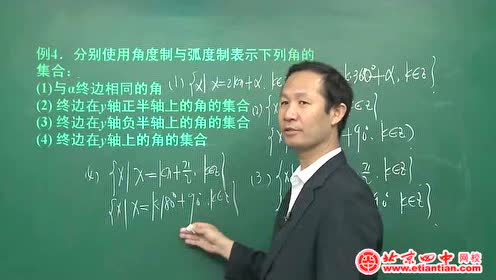 例4．分别使用角度制与弧度制表示下列角的
集合：
(1)与α终边相同的角
(2) 终边在y轴正半轴上的角的集合
(3) 终边在y轴负半轴上的角的集合
(4) 终边在y轴上的角的集合
(1) {x|x=2kπ+α, k∈
360°+α, k∈z}
(2) {
+90°, k∈z}
(4) {x|x=kπ+π/2, k∈z}
{x|x=k180°+90°, k∈z}
(3) {x
π/2, k∈z}
90° k∈z}
北京四中网校
www.etiantian.com